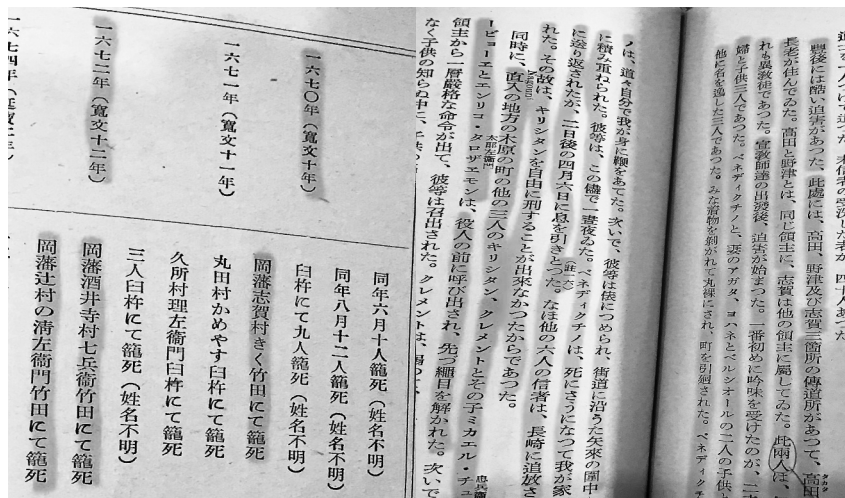 豊後には酷い迫害があつた。此處には、高田、野津及び志賀三箇所の傳道所があつて、高田
長老が住んでゐた。高田と野津とは、同じ領主に、志賀は他の領主に屬してゐた。此兩人は、
れも異敎徒であつた。宣敎師達の出發後、迫害が始まつた。一番初めに吟味を受けたのが、二
婦と子供三人であつた。ベネディクチノと、妻のアガタ、ヨハネとベルシオールの二人の子供と
他に名を逸した三人であつた。みな着物を剝がれて丸裸にされ、町を引廻された。ベネディクチ
ノは、道々自分で我が身に鞭をあてた。次いで、彼等は俵につめられ、街道に沿うた矢來の圍中
に積み重ねられた。彼等は、この儘で一晝夜ゐた。ベネディクチノは、死にさうになつて我が家
に送り返されたが、二日後の四月六日に息を引きとつた。(註一六)なほ他の六人の信者は、長崎に追放さ
れた。その故は、キリシタンを自由に刑することが出來なかつたからであつた。
同時に、直入の地方の木原の町の他の三人のキリシタン、クレメントとその子ミカエル・チュ
ービョーエとエンリコ・タロザエモンは、役人の前に呼び出され、先づ繩目を解かれた。次いで
忠兵衞
太郎左衞門
領主から一層嚴格な命令が出て、彼等は召出された。クレメントは、
なく子供の知らぬ中に、
同年六月十人籠死(姓名不明)
同年八月十二人籠死(姓名不明)
一六七〇年(寬文十年)
臼杵にて九人籠死(姓名不明)
岡藩志賀村きく竹田にて籠死
一六七一年(寬文十一年)
丸田村かめやす臼杵にて籠死
久所村理左衞門臼杵にて籠死
三人臼杵にて籠死(姓名不明)
一六七二年(寬文十二年)
岡藩酒井寺村七兵衞竹田にて籠死
岡藩辻村の清左衞門竹田にて籠死
一六七四年